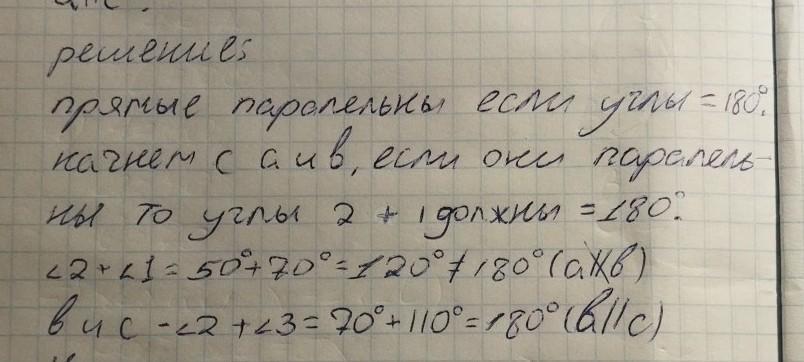 решение:
прямые паралельны если углы = 180°.
начнем с а и в, если они паралель-
ны то углы 2 + 1 должны = 180°.
∠2 + ∠1 = 50° + 70° = 120° ≠ 180° (а∦в)
в и с - ∠2 + ∠3 = 70° + 110° = 180° (в||с)